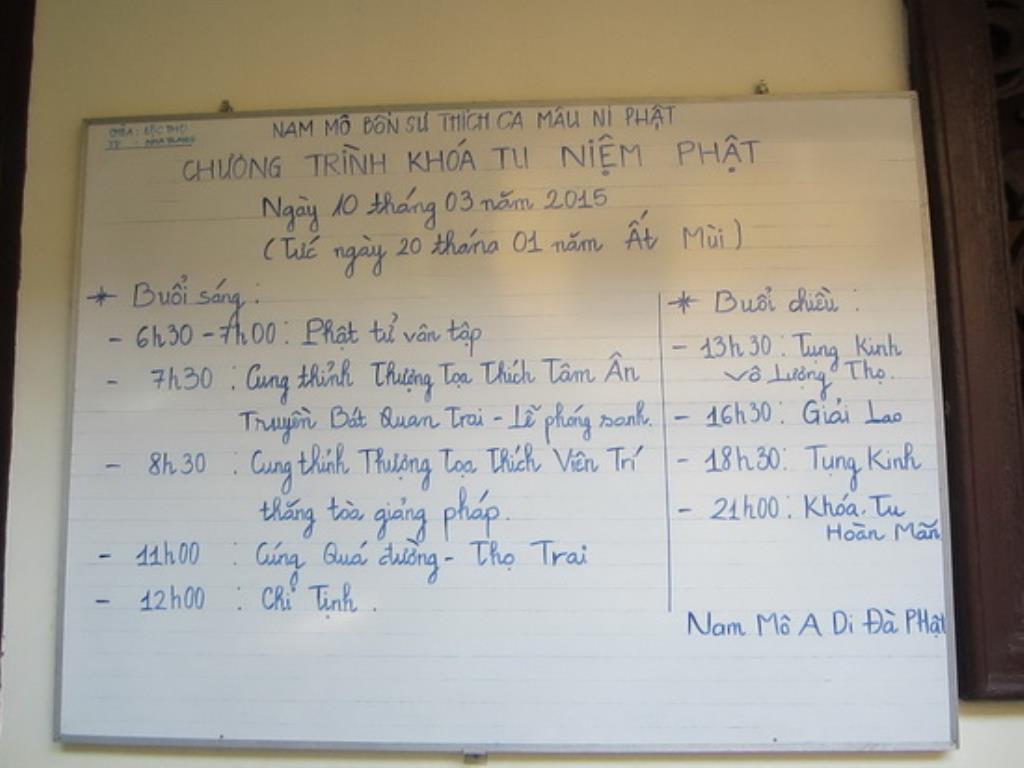 CHÙA : LỘC THỌ
TP : NHA TRANG
NAM MÔ BỔN SƯ THÍCH CA MÂU NI PHẬT
CHƯƠNG TRÌNH KHÓA TU NIỆM PHẬT
Ngày 10 tháng 03 năm 2015
(Tức ngày 20 tháng 01 năm Ất Mùi)
* Buổi sáng :
- 6h30 - 7h00 : Phật tử vân tập
- 7h30 : Cung thỉnh Thượng Tọa Thích Tâm Ân
Truyền Bát Quan Trai - Lễ phóng sanh.
- 8h30 : Cung thỉnh Thượng Tọa Thích Viên Trí
thăng tòa giảng pháp.
- 11h00 : Cúng Quá đường - Thọ Trai
- 12h00 : Chỉ Tịnh .
* Buổi chiều :
- 13h30 : Tụng Kinh
Vô Lượng Thọ.
- 16h30 : Giải Lao
- 18h30 : Tụng Kinh
- 21h00 : Khóa Tu
Hoàn Mãn
Nam Mô A Di Đà Phật